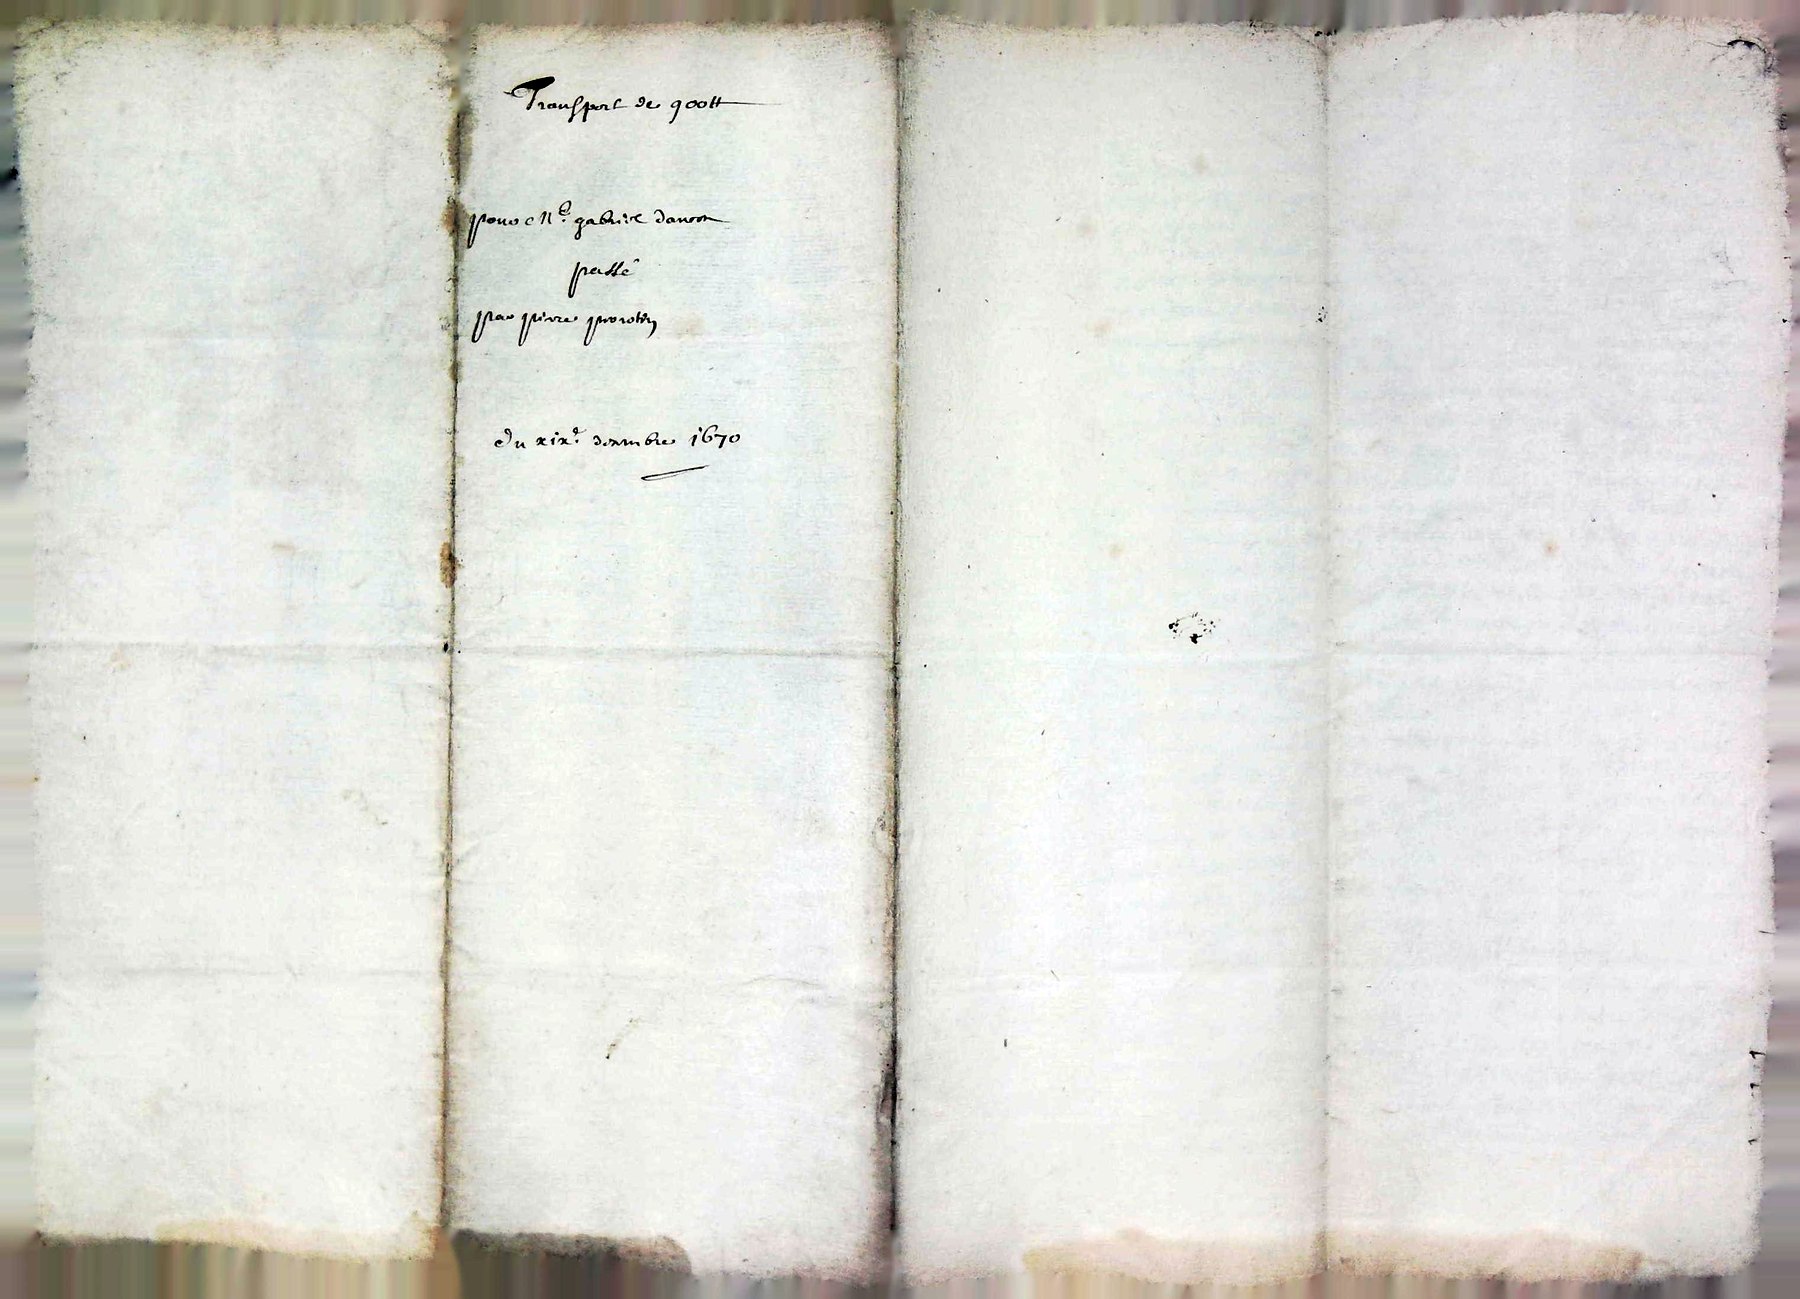 Transport de 900tt
pour Me. gabriel
passé
par pierre
du xixe. decembre 1670